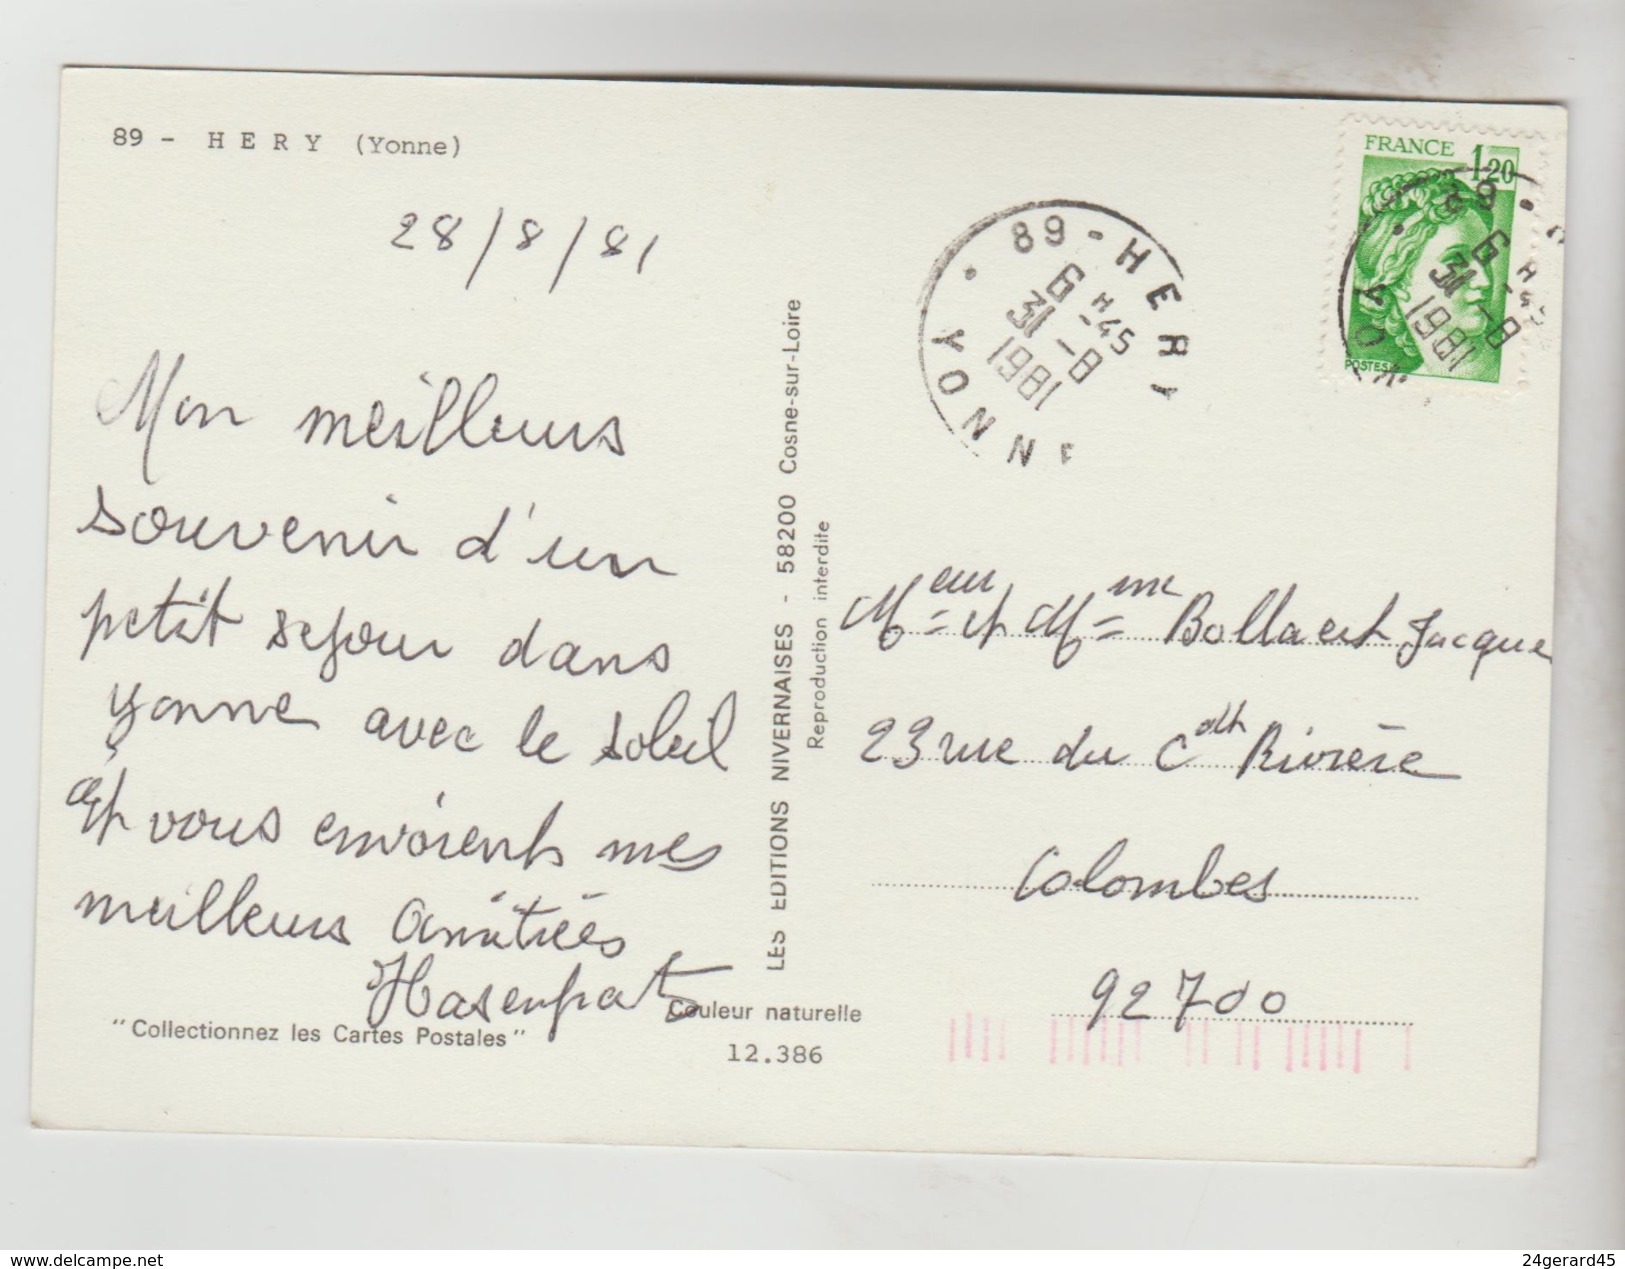 89 - HERY (Yonne)
28/8/81
Mon meilleurs
souvenir d'un
petit sejour dans
yonne avec le soleil
Et vous envoient mes
meilleurs Amitiés
Hasenfratz
"Collectionnez les Cartes Postales"
LES EDITIONS NIVERNAISES - 58200 Cosne-sur-Loire
Reproduction interdite
Couleur naturelle
12.386
89 - HERY
6 H 45
31 - 8
1981
YONNE
FRANCE 1,20
POSTES
89
6 H 45
31 - 8
1981
Meur et Mme Bollaert Jacque
23 rue du Cdt Rivière
Colombes
92700
delcampe.net
24gerard45